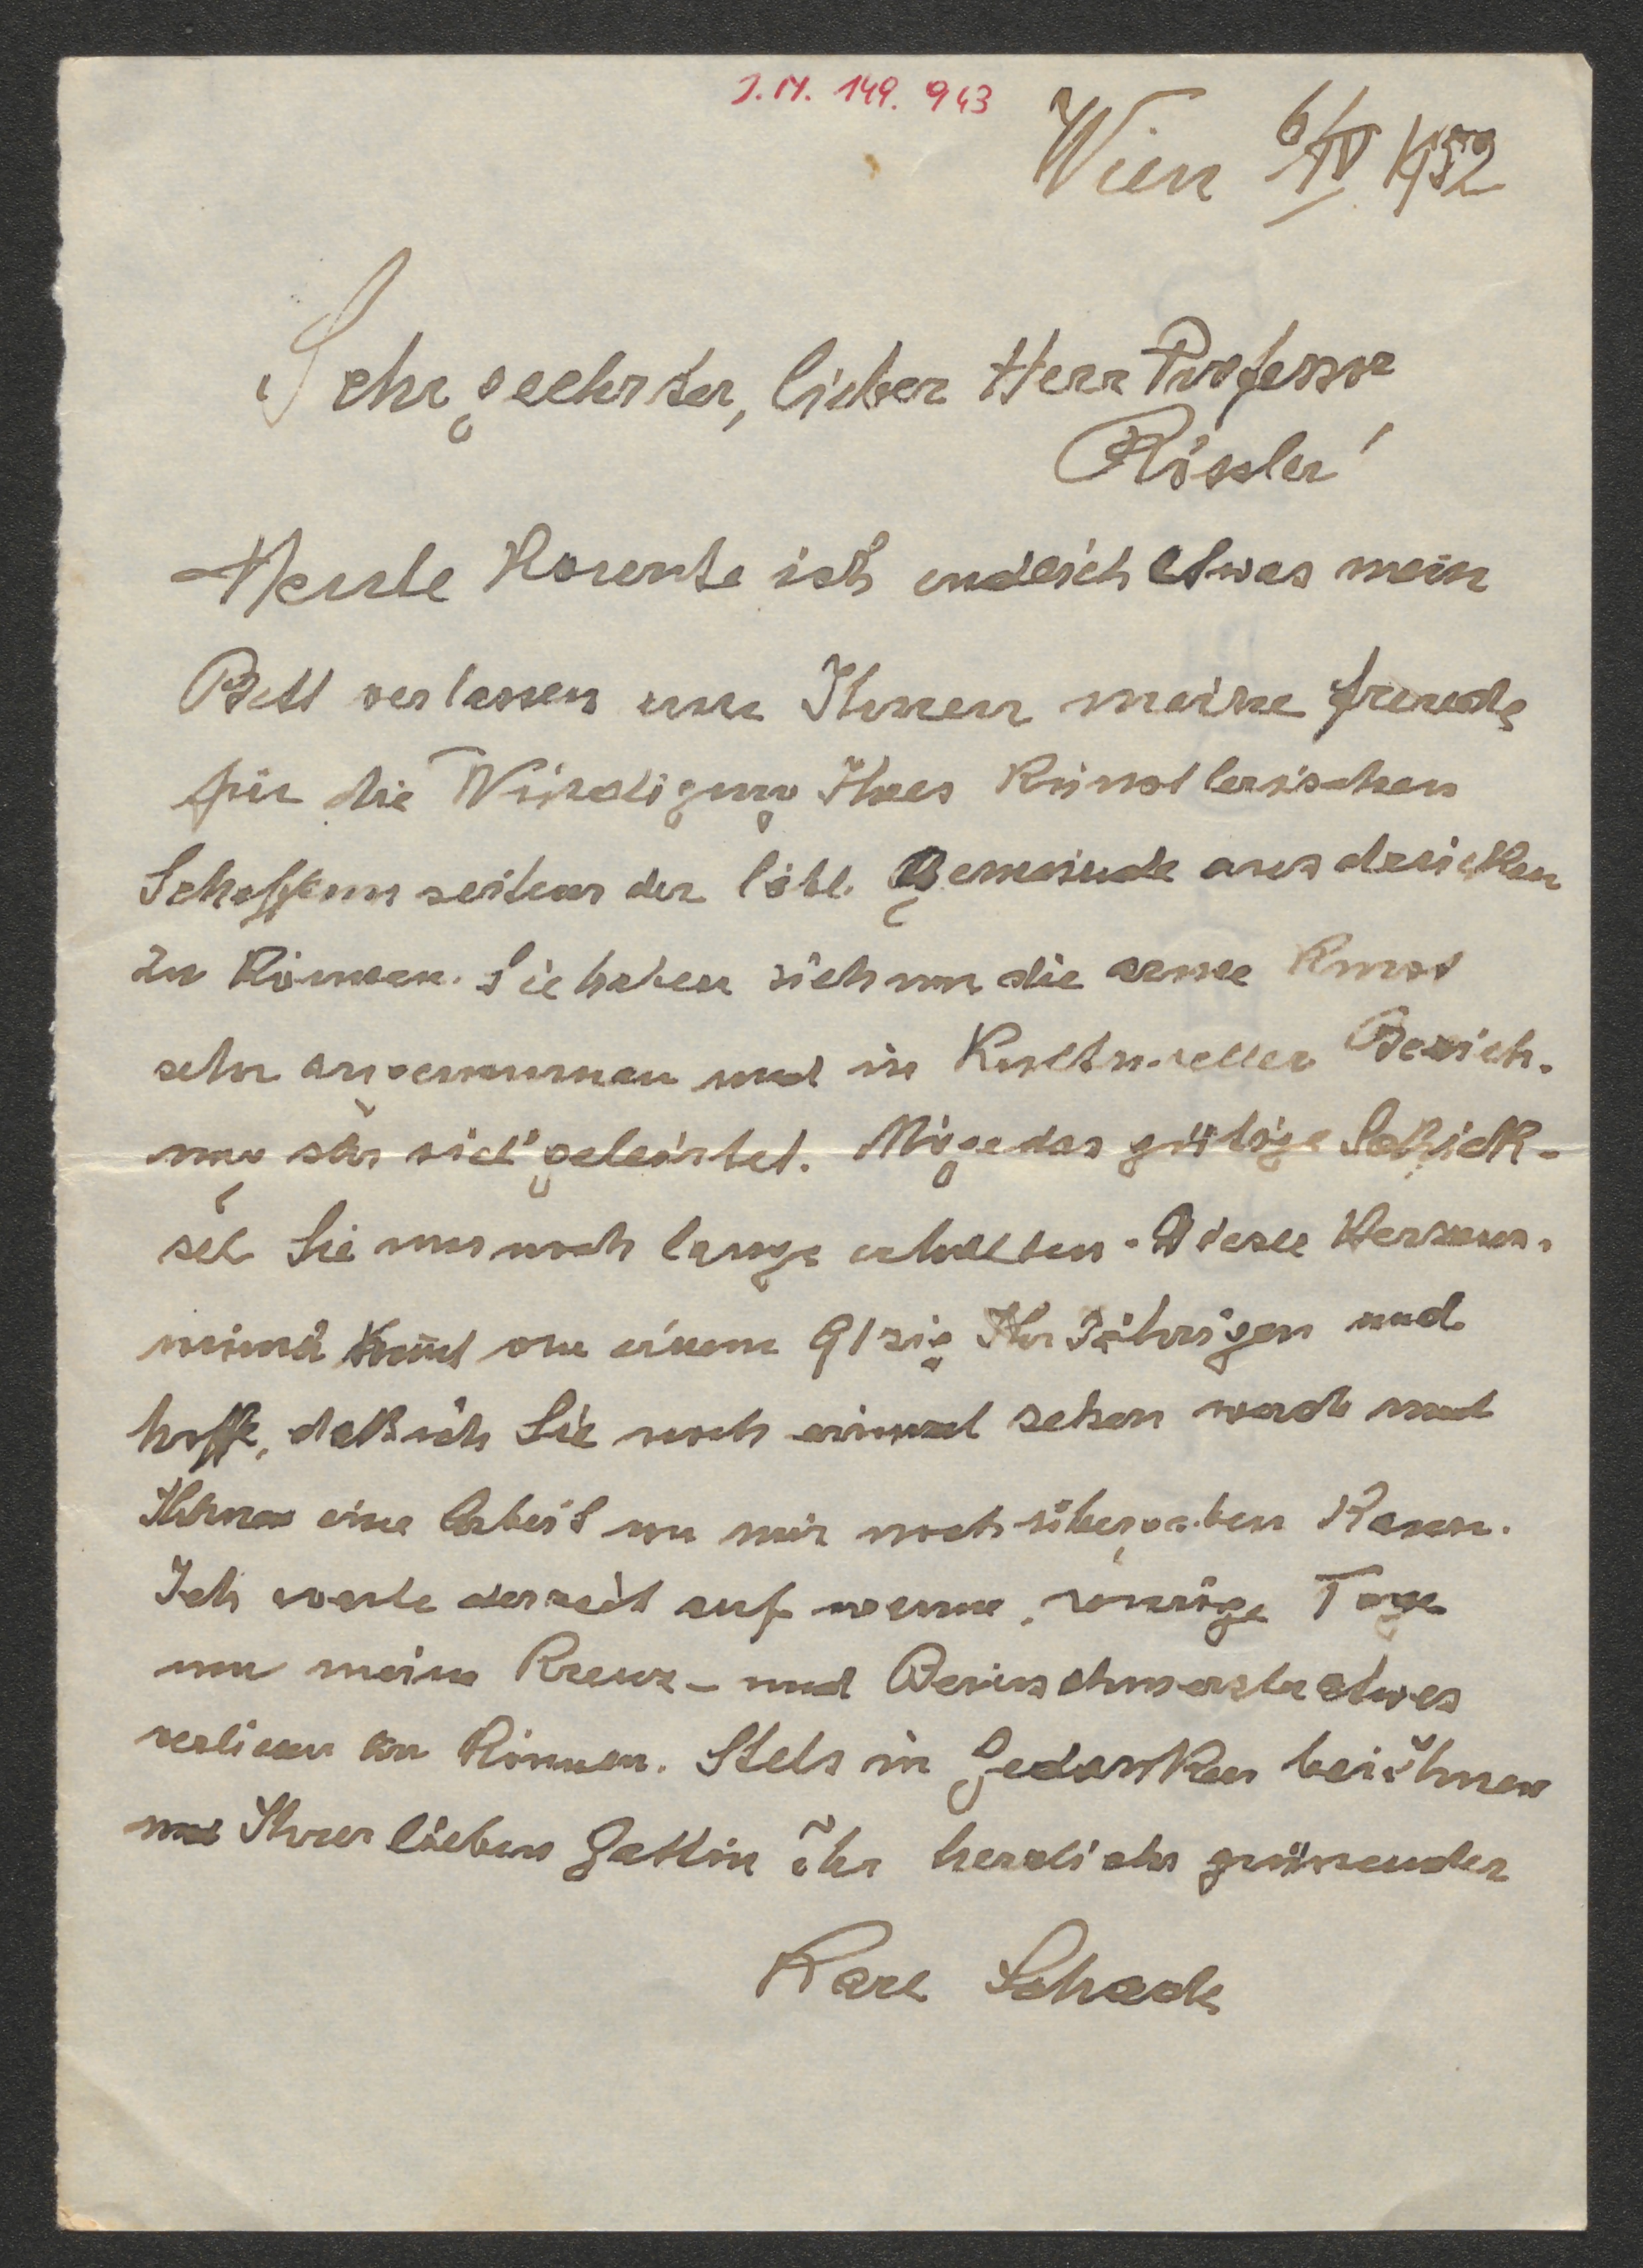 J.N. 149.943
Wien 6/IV 1952
Sehr geehrter, lieber Herr Professor
Rössler!
Heute konnte ich endlich etwas mein
Bett verlassen um Ihnen meine freude
für die Würdigung Ihres künstlerischen
Schaffens seitens der löbl. Gemeinde ausdrücken
zu können. Sie haben sich um die arme Kunst
sehr angenommen und in kultureller Bezieh-
ung sehr viel geleistet. Möge das gütige Schick-
sal Sie uns noch lange erhalten. Diese Herzens-
kommt von einem 91zig Jährigen und
hoffe, daß ich Sie noch einmal sehen werde und
Ihnen eine Arbeit von mir noch übergeben kann.
Ich warte derzeit auf warme, sonnige Tage
um meine Kreuz- und Beinschmerzen etwas
verlieren zu können. Stets in Gedanken bei ihnen
und Ihrer lieben Gattin ihr herzlichs grüssender
Karl Schade